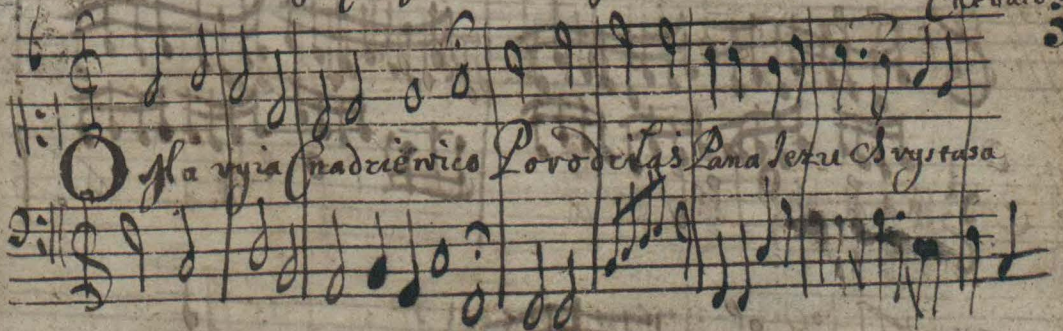 O Ma ryia Cna dziewico Porodziłas Pana Jezu Chrystusa